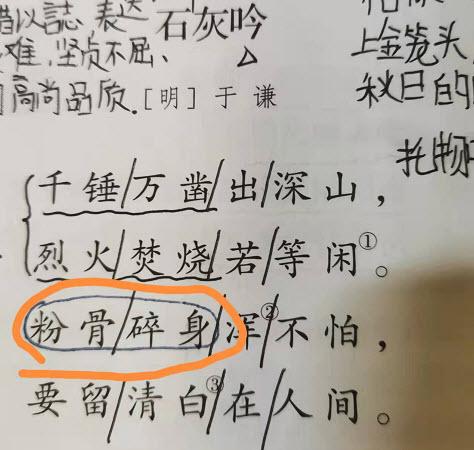 借以言志、表达
石灰吟
坚贞不屈、
高尚品质.
[明] 于谦
上金笼头
秋日的
托物
千锤/万凿/出/深山，
烈火/焚烧/若/等闲①。
粉骨/碎身/浑②/不怕，
要留/清白③/在/人间。